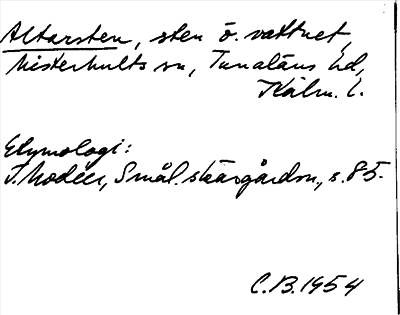 Altarsten, sten ö. vattnet,
Misterhults sn, Tunaläns hd,
Kalm. l.
Etymologi:
I. Modéer, Smål. skärgårdsn., s. 85.
C.B. 1954